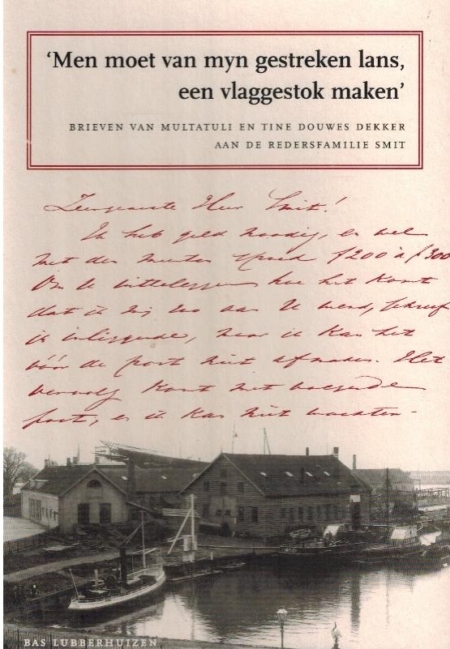 ‘Men moet van myn gestreken lans,
een vlaggestok maken’
BRIEVEN VAN MULTATULI EN TINE DOUWES DEKKER
AAN DE REDERSFAMILIE SMIT
Zeergeachte Heer Smit!
Ik heb geld noodig, en wel
met den meesten spoed f200 à f300
Om U uitteleggen hoe het komt
dat ik my zoo aan U wend, schreef
ik inliggende, maar ik kan het
vóór de post niet afmaken. Het
vervolg komt met volgende
post, en ik kan niet wachten.
BAS LUBBERHUIZEN